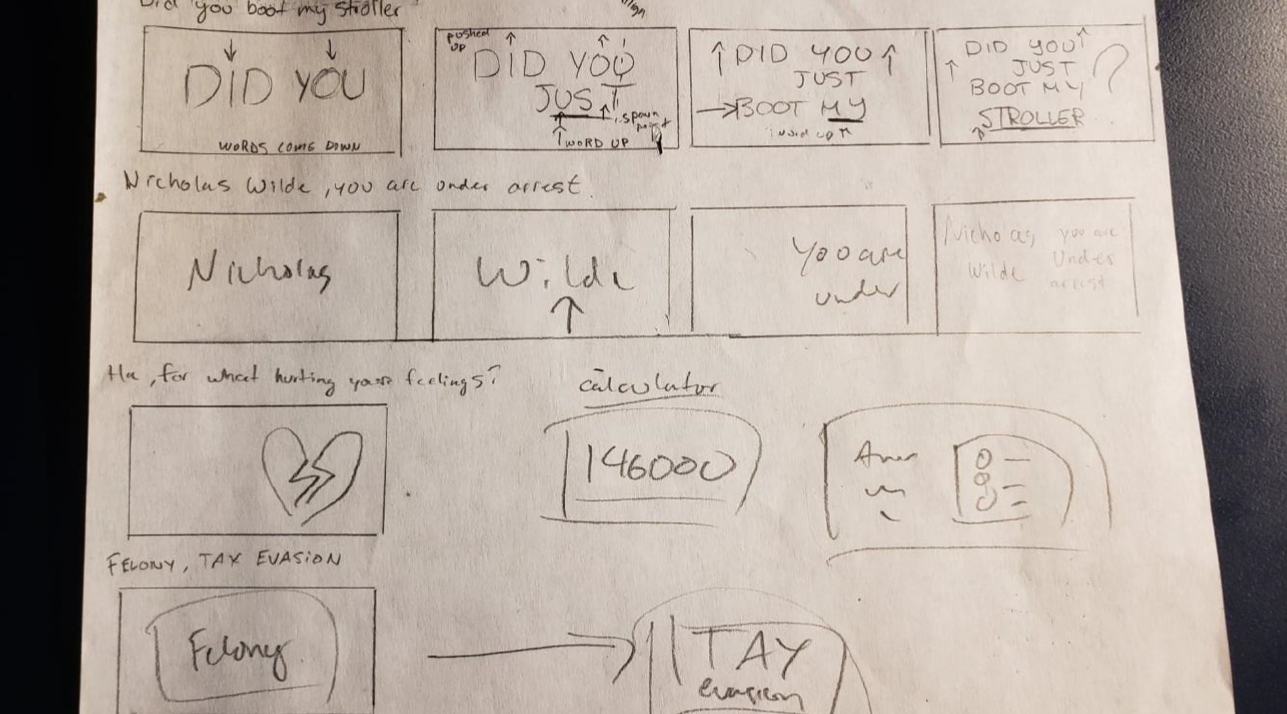 Did you boot my stroller
DID YOU
WORDS COME DOWN
pushed
UP
DID YOU
JUST
spawn
WORD UP
DID YOU
JUST
BOOT MY
DID YOU
JUST
BOOT MY
STROLLER
?
Nicholas Wilde, you are under arrest.
Nicholas
Wilde
You are
under
Nicholas you are
Wilde Under
arrest
Ha, for what hurting your feelings?
calculator
146000
FELONY, TAX EVASION
Felony
TAY
evasion